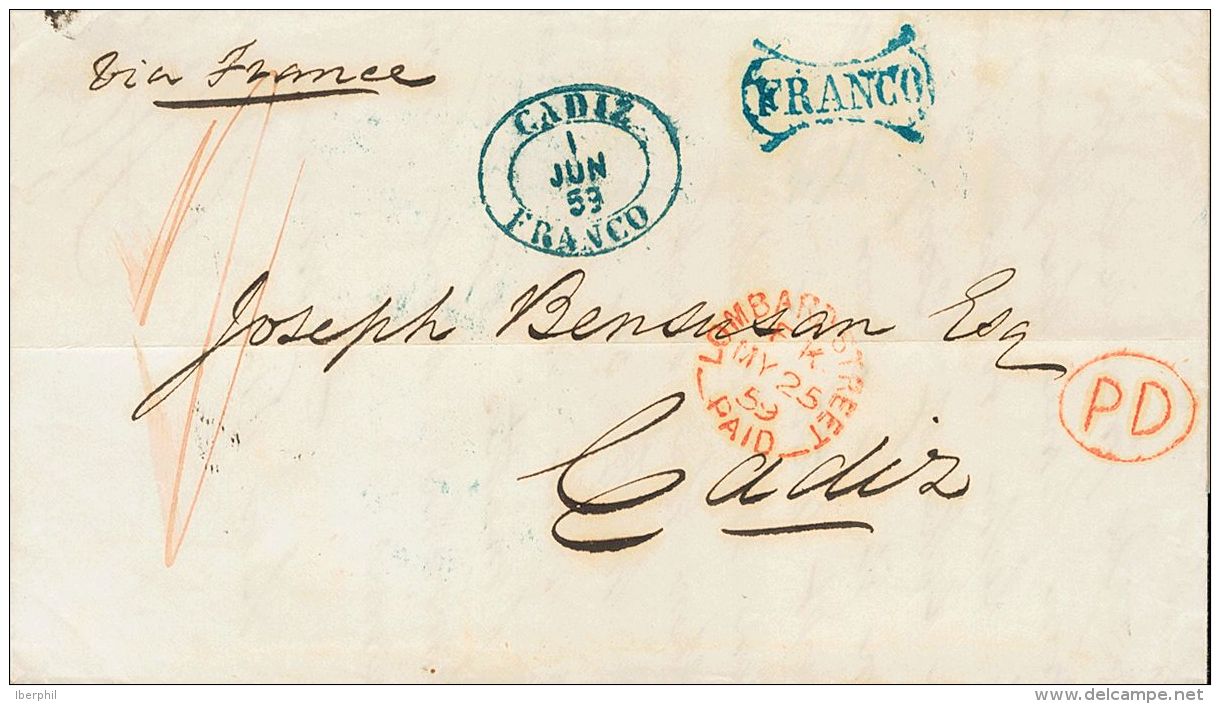 via France
FRANCO
CADIZ
1
JUN
59
FRANCO
Joseph Bensusan Esq
LOMBARD STREET
MY 25
59
PAID
PD
Cadiz
Iberphil
delcampe.net